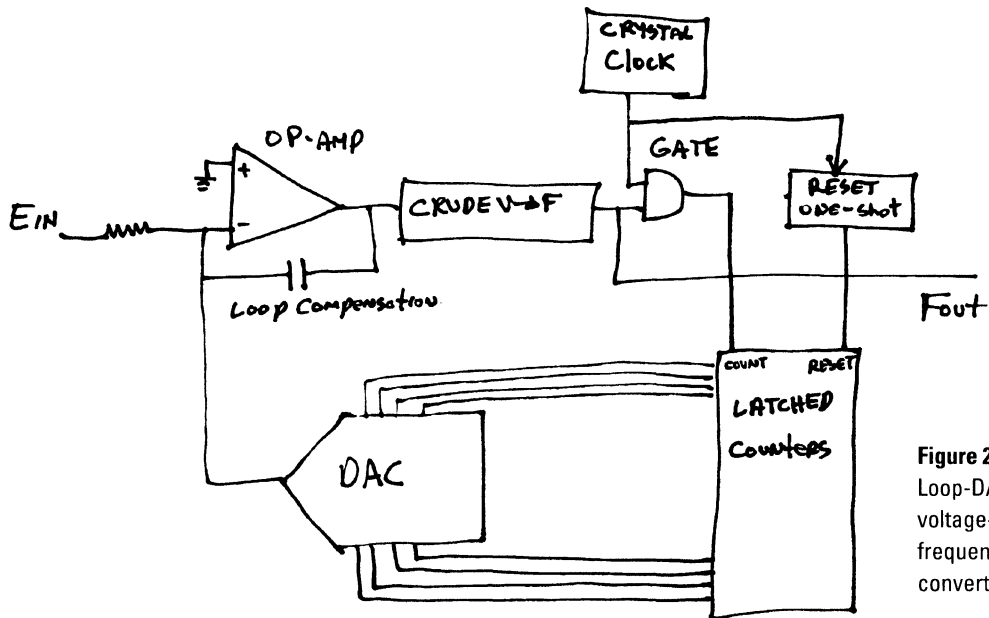 CRYSTAL
Clock
OP-AMP
GATE
+
-
EIN
CRUDE V→F
RESET
ONE-SHOT
Loop Compensation
Fout
COUNT RESET
LATCHED
Counters
DAC
Figure 2
Loop-DA
voltage-
frequen
convert